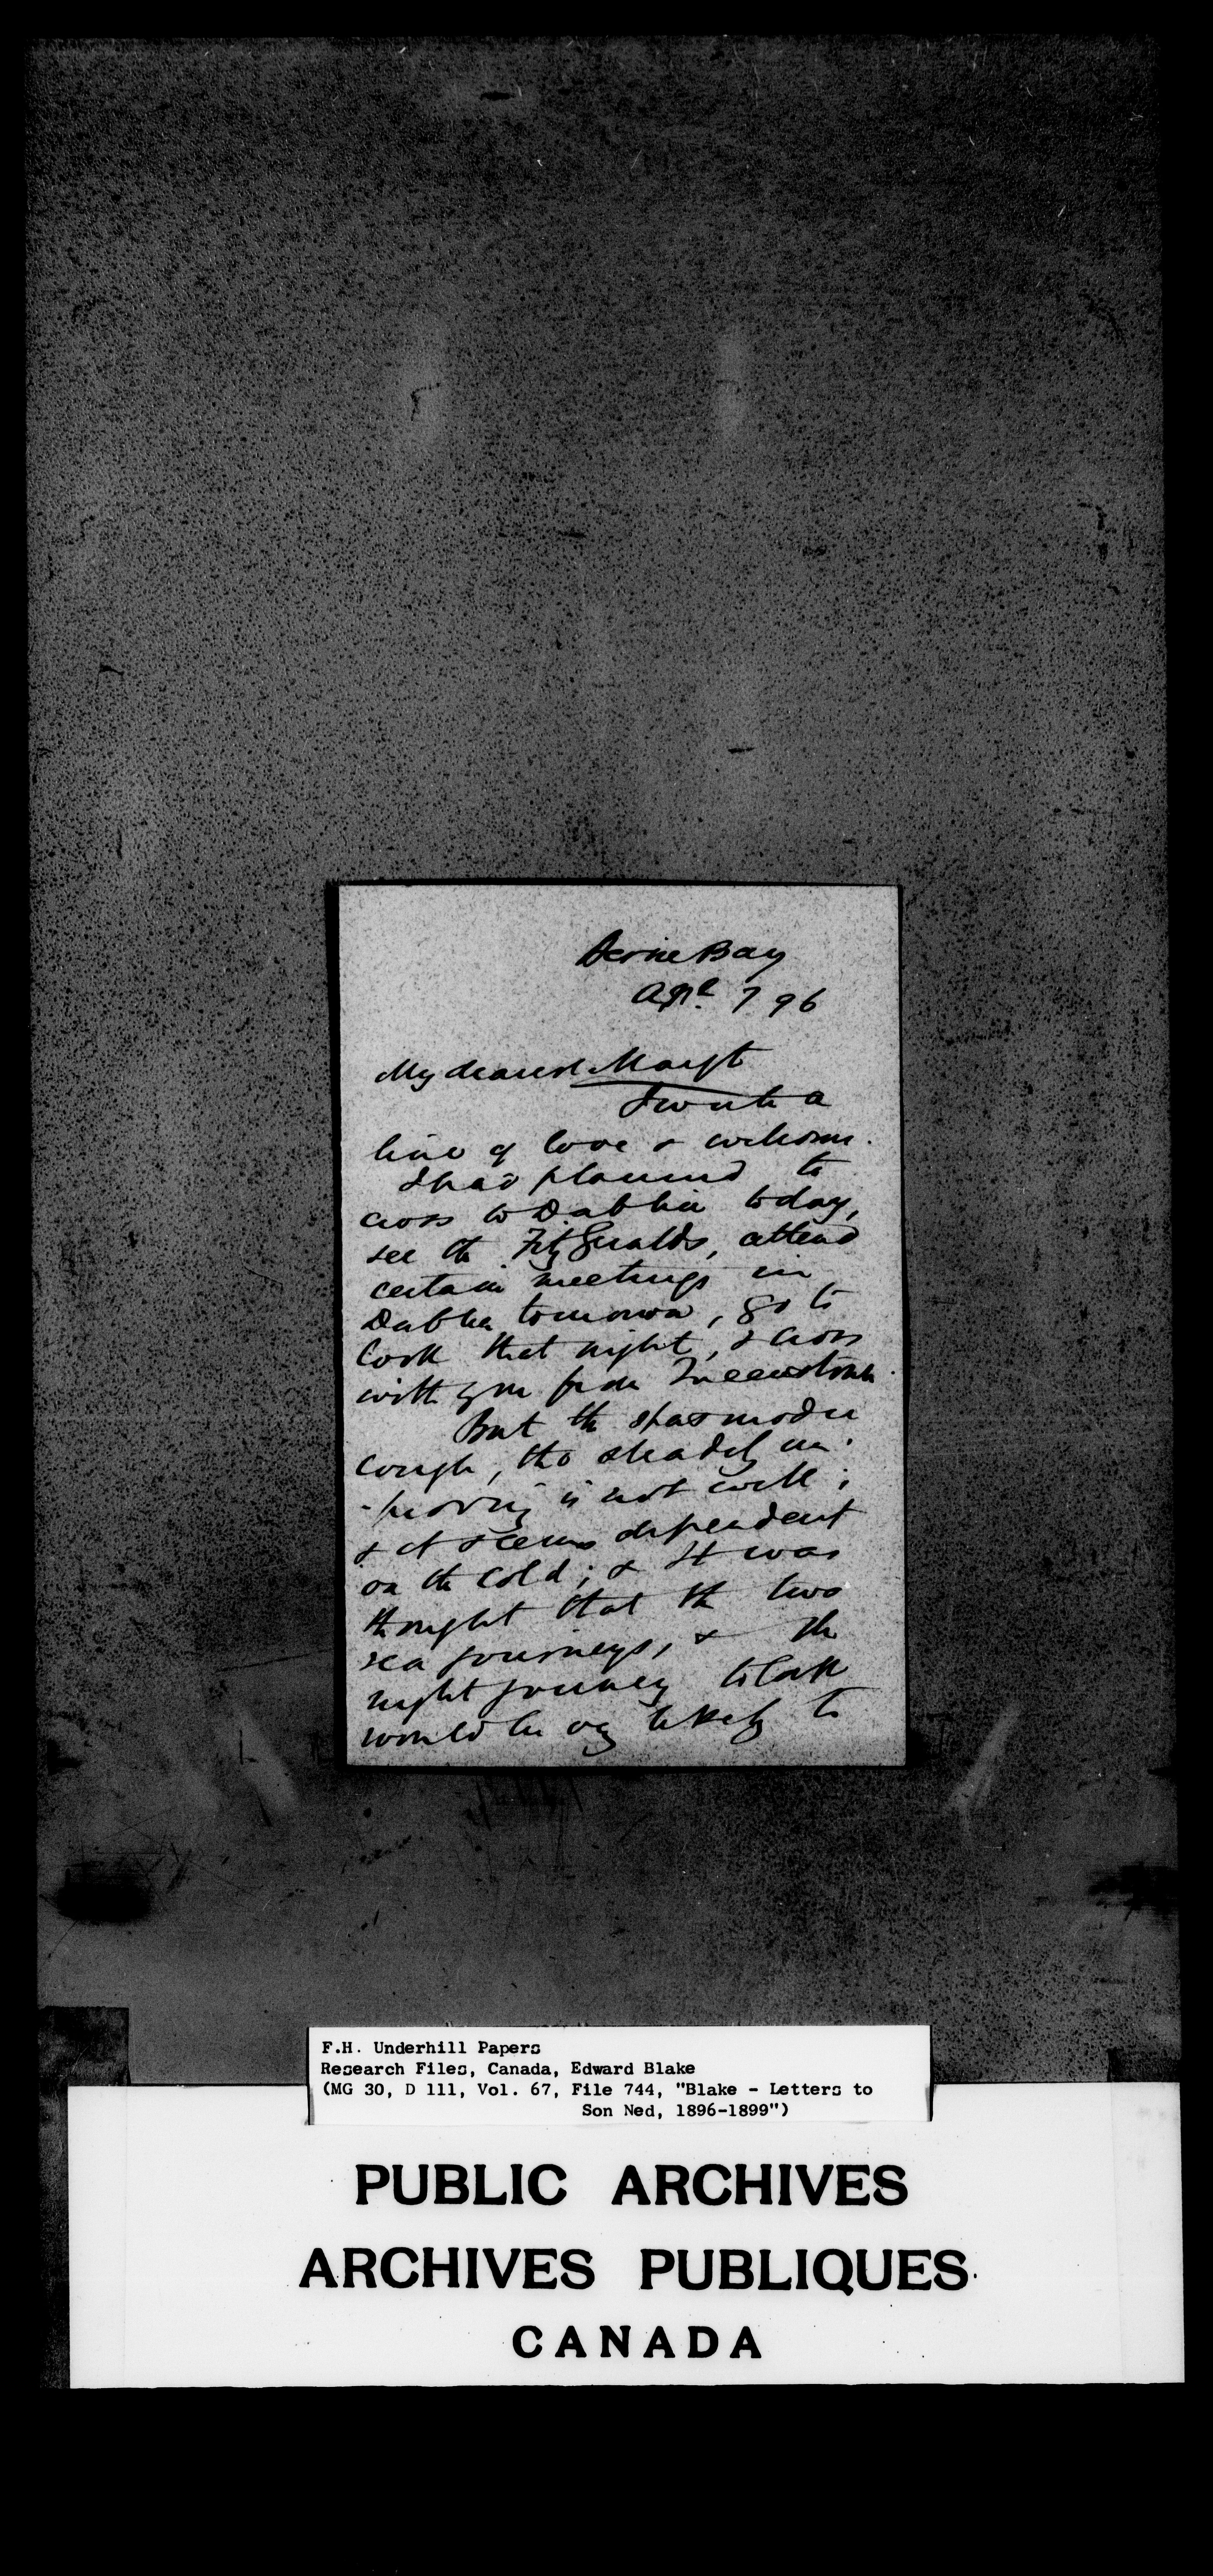 Herne Bay
Apl. 7 96
My dearest Margt
I write a
line of love & welcome.
I had planned to
cross to Dublin today,
see the FitzGeralds, attend
certain meetings in
Dublin tomorrow, go to
Cork that night, & cross
with you from Queenstown.
But the spasmodic
cough, tho steadily im-
-proving is not well;
& it seems dependent
on the cold; & it was
thought that the two
sea journeys, & the
night journey to Cork
would be likely to
F.H. Underhill Papers
Research Files, Canada, Edward Blake
(MG 30, D 111, Vol. 67, File 744, "Blake - Letters to
Son Ned, 1896-1899")
PUBLIC ARCHIVES
ARCHIVES PUBLIQUES
CANADA